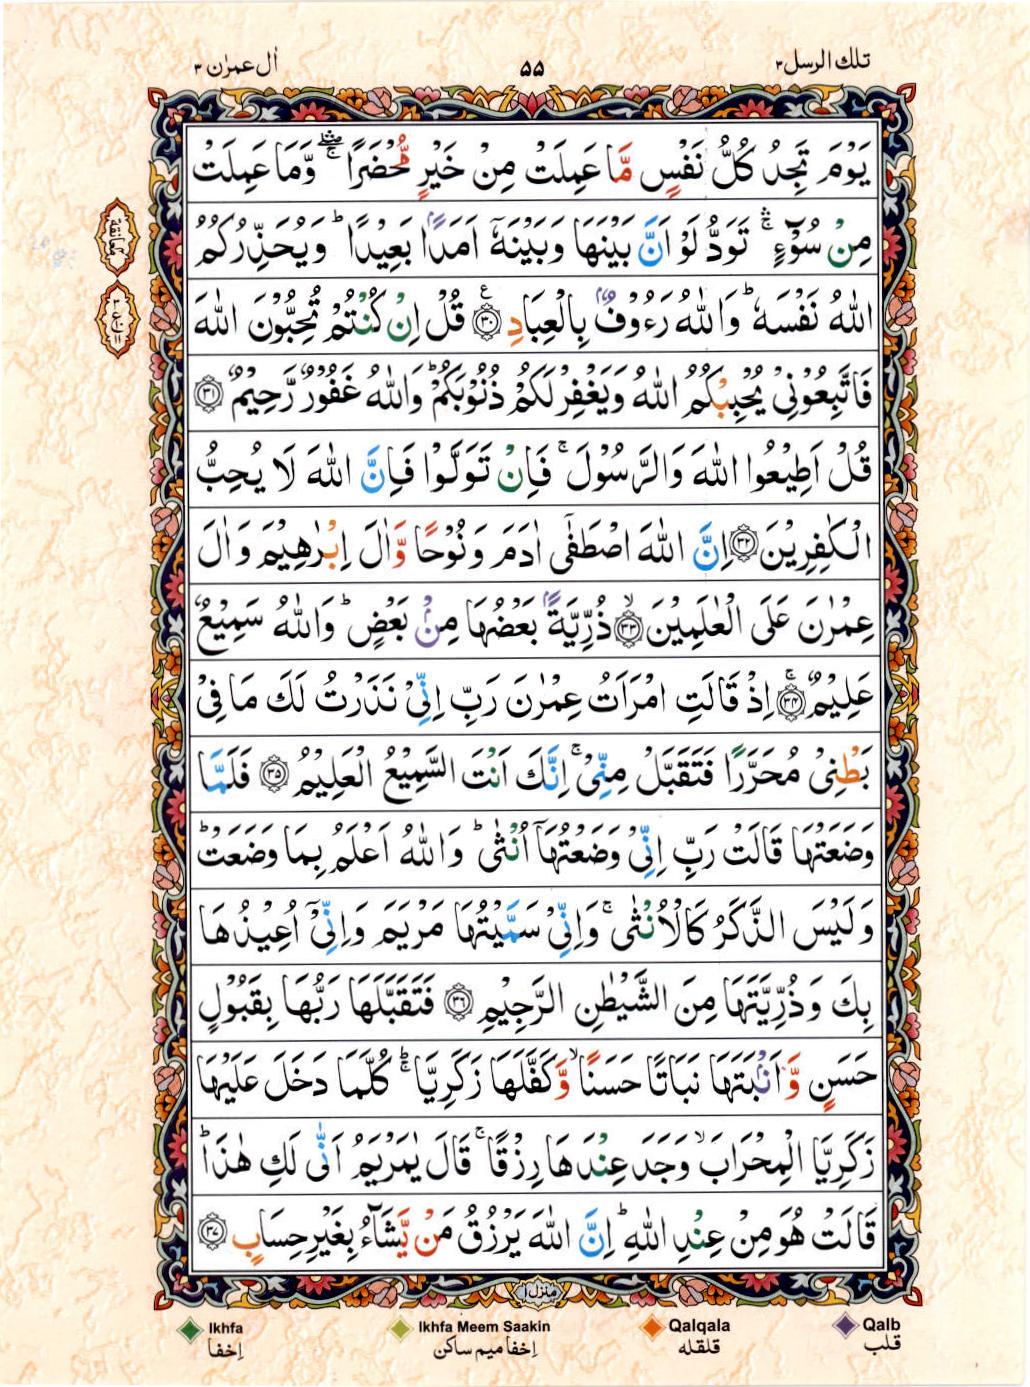 تلك الرسل ٣
٥٥
اٰل عمرٰن ٣
يَوْمَ تَجِدُ كُلُّ نَفْسٍ مَّا عَمِلَتْ مِنْ خَيْرٍ مُّحْضَرًا ۛۚ وَّمَا عَمِلَتْ
مِنْ سُوْٓءٍ ۛۚ تَوَدُّ لَوْ اَنَّ بَيْنَهَا وَبَيْنَهٗۤ اَمَدًۢا بَعِيْدًا ؕ وَيُحَذِّرُكُمُ
اللّٰهُ نَفْسَهٗ ؕ وَاللّٰهُ رَءُوْفٌۢ بِالْعِبَادِ ﴿٣٠﴾ قُلْ اِنْ كُنْتُمْ تُحِبُّوْنَ اللّٰهَ
فَاتَّبِعُوْنِيْ يُحْبِبْكُمُ اللّٰهُ وَيَغْفِرْ لَكُمْ ذُنُوْبَكُمْ ؕ وَاللّٰهُ غَفُوْرٌ رَّحِيْمٌ ﴿٣١﴾
قُلْ اَطِيْعُوا اللّٰهَ وَالرَّسُوْلَ ۚ فَاِنْ تَوَلَّوْا فَاِنَّ اللّٰهَ لَا يُحِبُّ
الْكٰفِرِيْنَ ﴿٣٢﴾ اِنَّ اللّٰهَ اصْطَفٰٓى اٰدَمَ وَنُوْحًا وَّاٰلَ اِبْرٰهِيْمَ وَاٰلَ
عِمْرٰنَ عَلَى الْعٰلَمِيْنَ ۙ﴿٣٣﴾ ذُرِّيَّةًۢ بَعْضُهَا مِنْۢ بَعْضٍ ؕ وَاللّٰهُ سَمِيْعٌ
عَلِيْمٌ ۚ﴿٣٤﴾ اِذْ قَالَتِ امْرَاَتُ عِمْرٰنَ رَبِّ اِنِّيْ نَذَرْتُ لَكَ مَا فِيْ
بَطْنِيْ مُحَرَّرًا فَتَقَبَّلْ مِنِّيْ ۚ اِنَّكَ اَنْتَ السَّمِيْعُ الْعَلِيْمُ ﴿٣٥﴾ فَلَمَّا
وَضَعَتْهَا قَالَتْ رَبِّ اِنِّيْ وَضَعْتُهَاۤ اُنْثٰى ؕ وَاللّٰهُ اَعْلَمُ بِمَا وَضَعَتْ ؕ
وَلَيْسَ الذَّكَرُ كَالْاُنْثٰى ۚ وَاِنِّيْ سَمَّيْتُهَا مَرْيَمَ وَاِنِّيْۤ اُعِيْذُهَا
بِكَ وَذُرِّيَّتَهَا مِنَ الشَّيْطٰنِ الرَّجِيْمِ ﴿٣٦﴾ فَتَقَبَّلَهَا رَبُّهَا بِقَبُوْلٍ
حَسَنٍ وَّاَنْۢبَتَهَا نَبَاتًا حَسَنًا ۙ وَّكَفَّلَهَا زَكَرِيَّا ؕۚ كُلَّمَا دَخَلَ عَلَيْهَا
زَكَرِيَّا الْمِحْرَابَ ۙ وَجَدَ عِنْدَهَا رِزْقًا ۚ قَالَ يٰمَرْيَمُ اَنّٰى لَكِ هٰذَا ؕ
قَالَتْ هُوَ مِنْ عِنْدِ اللّٰهِ ؕ اِنَّ اللّٰهَ يَرْزُقُ مَنْ يَّشَآءُ بِغَيْرِ حِسَابٍ ﴿٣٧﴾
منزل ١
Ikhfa
Ikhfa Meem Saakin
Qalqala
Qalb
اِخفا
اِخفا ميم ساكن
قلقله
قلب